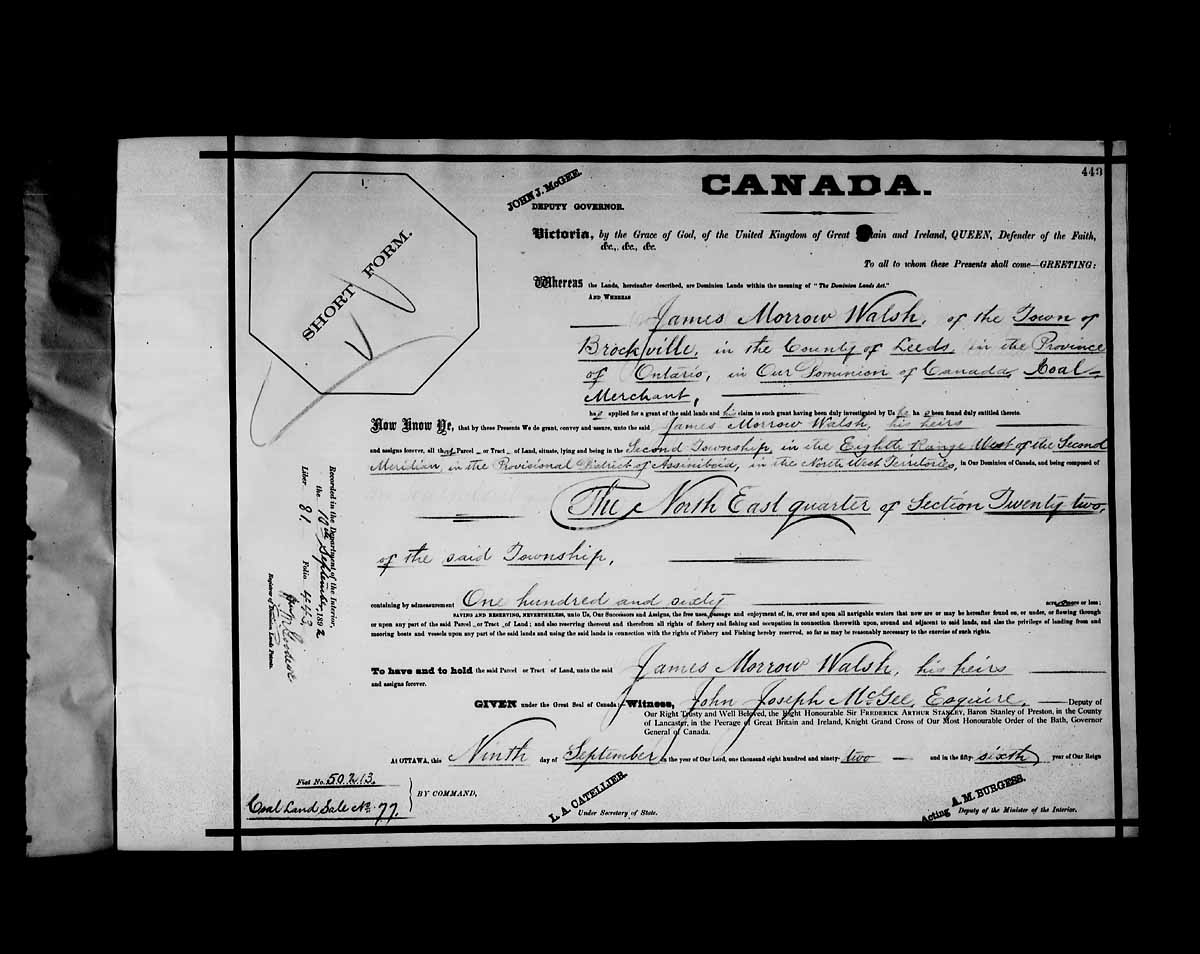 443
CANADA.
JOHN J. McGEE.
DEPUTY GOVERNOR.
SHORT FORM.
Victoria, by the Grace of God, of the United Kingdom of Great tain and Ireland, QUEEN, Defender of the Faith,
&c., &c., &c.
To all to whom these Presents shall come—GREETING:
Whereas the Lands, hereinafter described, are Dominion Lands within the meaning of "The Dominion Lands Act."
AND WHEREAS
James Morrow Walsh, of the Town of
Brockville, in the County of Leeds, in the Province
of Ontario, in Our Dominion of Canada, Coal
Merchant,
has applied for a grant of the said lands and his claim to such grant having been duly investigated by Us he has been found duly entitled thereto.
Now Know Ye, that by these Presents We do grant, convey and assure, unto the said James Morrow Walsh, his heirs
and assigns forever, all that Parcel or Tract of Land, situate, lying and being in the Second Township, in the Eighth Range West of the Second
Meridian, in the Provisional District of Assiniboia, in the North West Territories, in Our Dominion of Canada, and being composed of
The North East quarter of Section Twenty two,
of the said Township,
containing by admeasurement One hundred and sixty acres more or less;
SAVING AND RESERVING, NEVERTHELESS, unto Us, Our Successors and Assigns, the free uses, passage and enjoyment of, in, over and upon all navigable waters that now are or may be hereafter found on, or under, or flowing through
or upon any part of the said Parcel or Tract of Land; and also reserving thereout and therefrom all rights of fishery and fishing and occupation in connection therewith upon, around and adjacent to said lands, and also the privilege of landing from and
mooring boats and vessels upon any part of the said lands and using the said lands in connection with the rights of Fishery and Fishing hereby reserved, so far as may be reasonably necessary to the exercise of such rights.
To have and to hold the said Parcel or Tract of Land, unto the said James Morrow Walsh, his heirs
and assigns forever.
GIVEN under the Great Seal of Canada:—Witness, John Joseph McGee, Esquire, Deputy of
Our Right Trusty and Well Beloved, the Right Honourable Sir FREDERICK ARTHUR STANLEY, Baron Stanley of Preston, in the County
of Lancaster, in the Peerage of Great Britain and Ireland, Knight Grand Cross of Our Most Honourable Order of the Bath, Governor
General of Canada.
At OTTAWA, this Ninth day of September in the year of Our Lord, one thousand eight hundred and ninety-two and in the fifty-sixth year of Our Reign
Fiat No. 50213.
Coal Land Sale No. 77.
BY COMMAND,
L. A. CATELLIER.
Under Secretary of State.
Acting A. M. BURGESS.
Deputy of the Minister of the Interior.
Recorded in the Department of the Interior,
the 10th September, 1892
Liber 81. Folio 443
Registrar of Dominion Lands Patents.